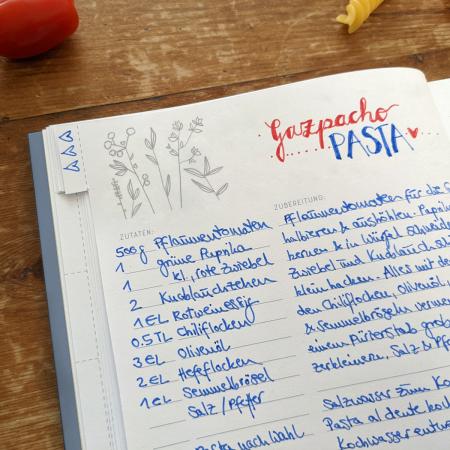 Gazpacho
PASTA
ZUTATEN:
500g Pflaumentomaten
1 grüne Paprika
1 kl. rote Zwiebel
2 Knoblauchzehen
1 EL Rotweinessig
0.5 TL Chiliflocken
3 EL Olivenöl
2 EL Hefeflocken
1 EL Semmelbrösel
Salz / Pfeffer
Pasta nach Wahl
ZUBEREITUNG:
Pflaumentomaten für die
halbieren & aushöhlen. Paprika
kernen & in Würfel schneid
Zwiebel und Knoblauch
klein hacken. Alles mit de
den Chiliflocken, Olivenöl,
& Semmelbröseln verme
einem Pürierstab grob
zerkleinern. Salz & Pf
Salzwasser zum Ko
Pasta al dente koc
Kochwasser entw